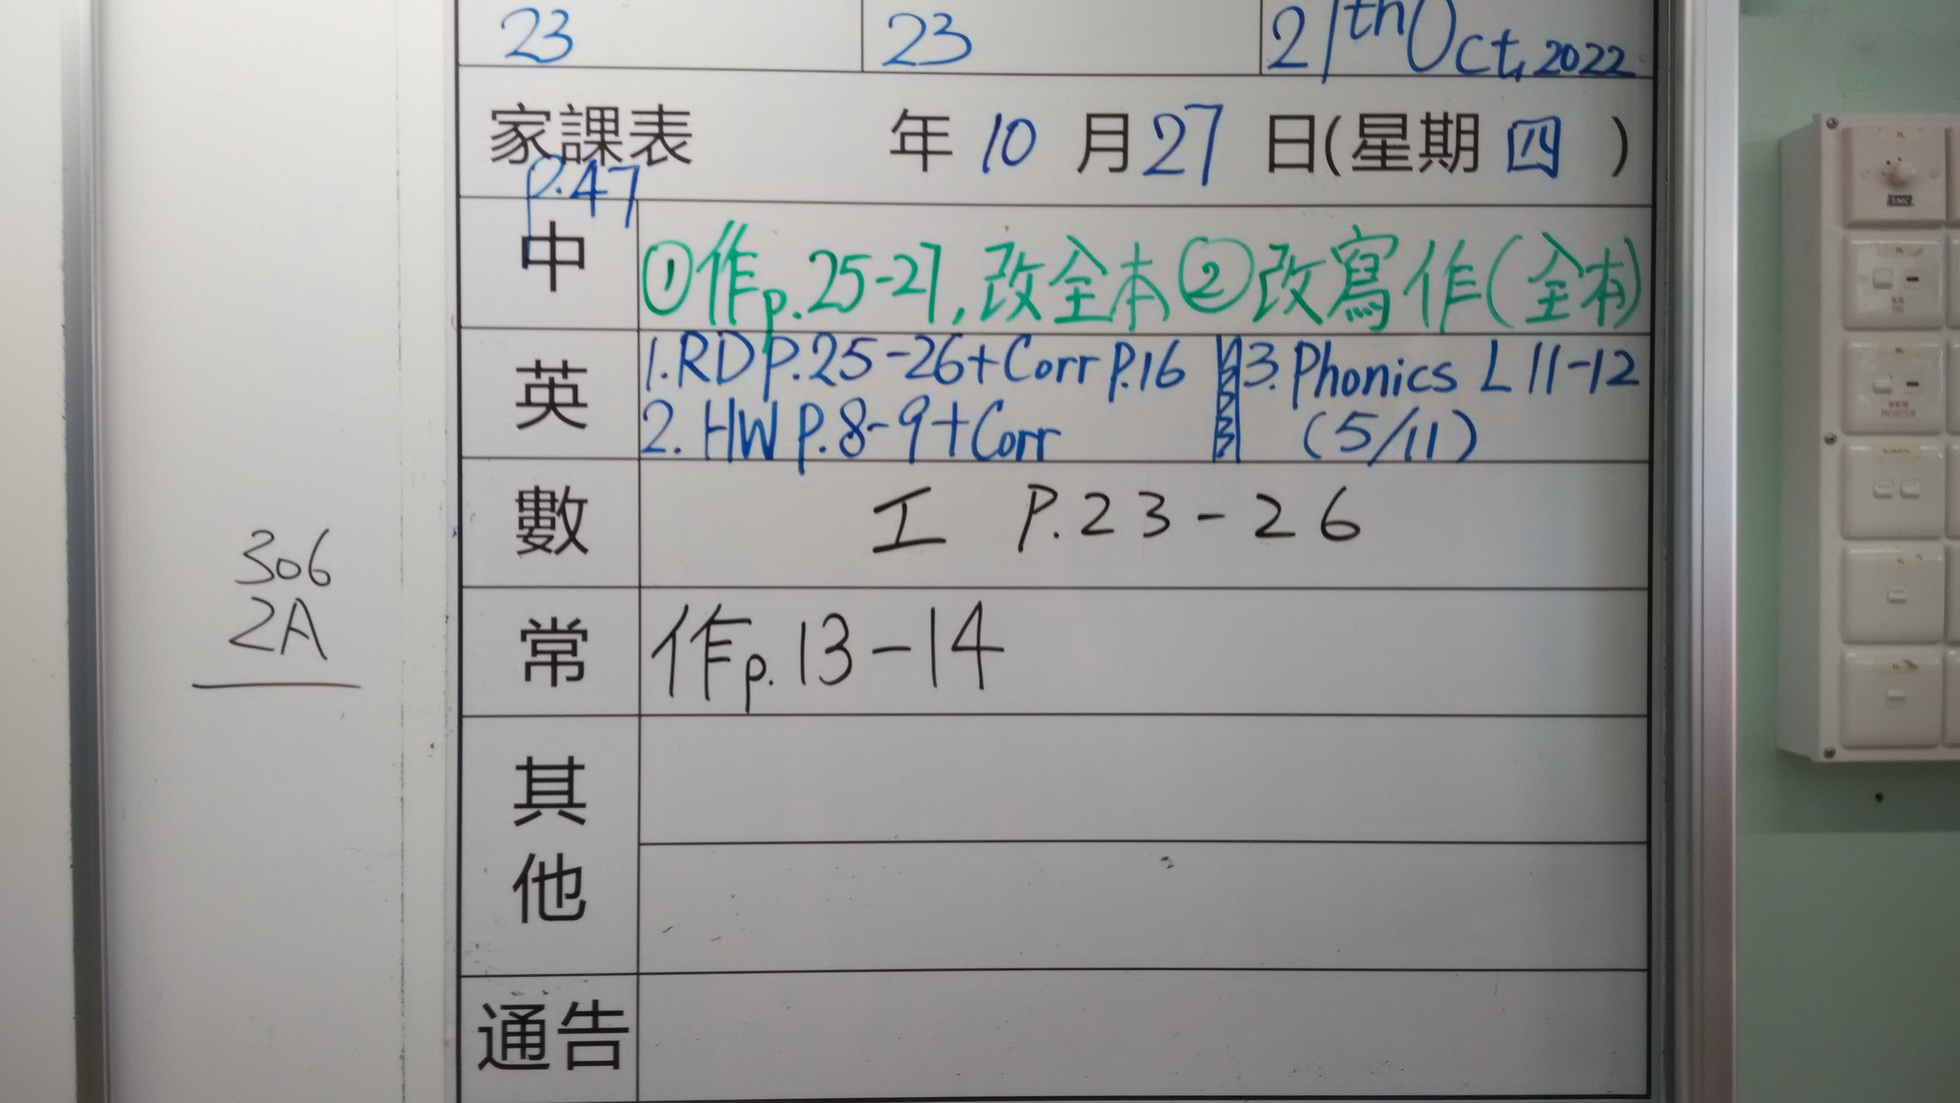 23 23 27th Oct, 2022
家課表 年 10 月 27 日(星期 四 )
P.47
中 ①作p.25-27,改全本②改寫作(全本)
英 1.RD P.25-26+Corr P.16 3. Phonics L 11-12
2. HW P.8-9+Corr (5/11)
數 工 P.23-26
常 作p.13-14
其他
通告
306
2A